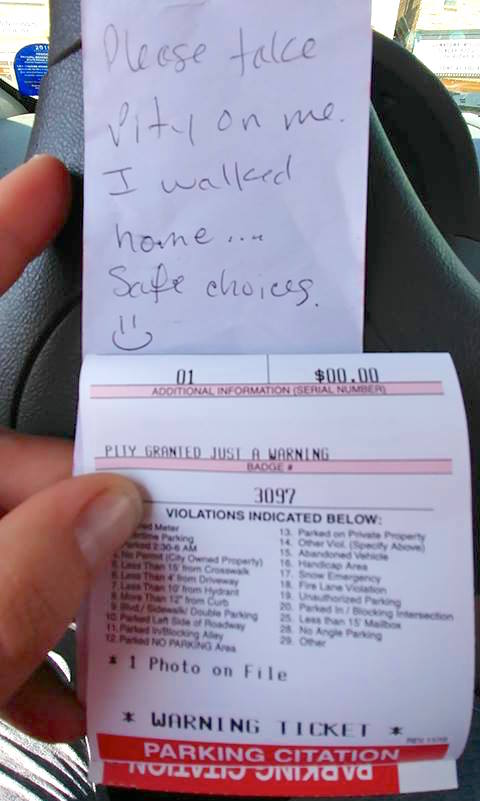 Please take
Pity on me.
I walked
home....
Safe choices.
01 $00.00
ADDITIONAL INFORMATION (SERIAL NUMBER)
PITY GRANTED JUST A WARNING
BADGE #
3097
VIOLATIONS INDICATED BELOW:
Meter
Parking
Parked 2:30-6 AM
No Permit (City Owned Property)
Less Than 15' from Crosswalk
Less Than 4' from Driveway
Less Than 10' from Hydrant
8. More Than 12" from Curb
9. Blvd./ Sidewalk/ Double Parking
10. Parked Left Side of Roadway
11. Parked In/Blocking Alley
12. Parked NO PARKING Area
13. Parked on Private Property
14. Other Viol. (Specify Above)
15. Abandoned Vehicle
16. Handicap Area
17. Snow Emergency
18. Fire Lane Violation
19. Unauthorized Parking
20. Parked In / Blocking Intersection
25. Less than 15' Mailbox
28. No Angle Parking
29. Other
* 1 Photo on File
* WARNING TICKET *
PARKING CITATION
PARKING CITATION